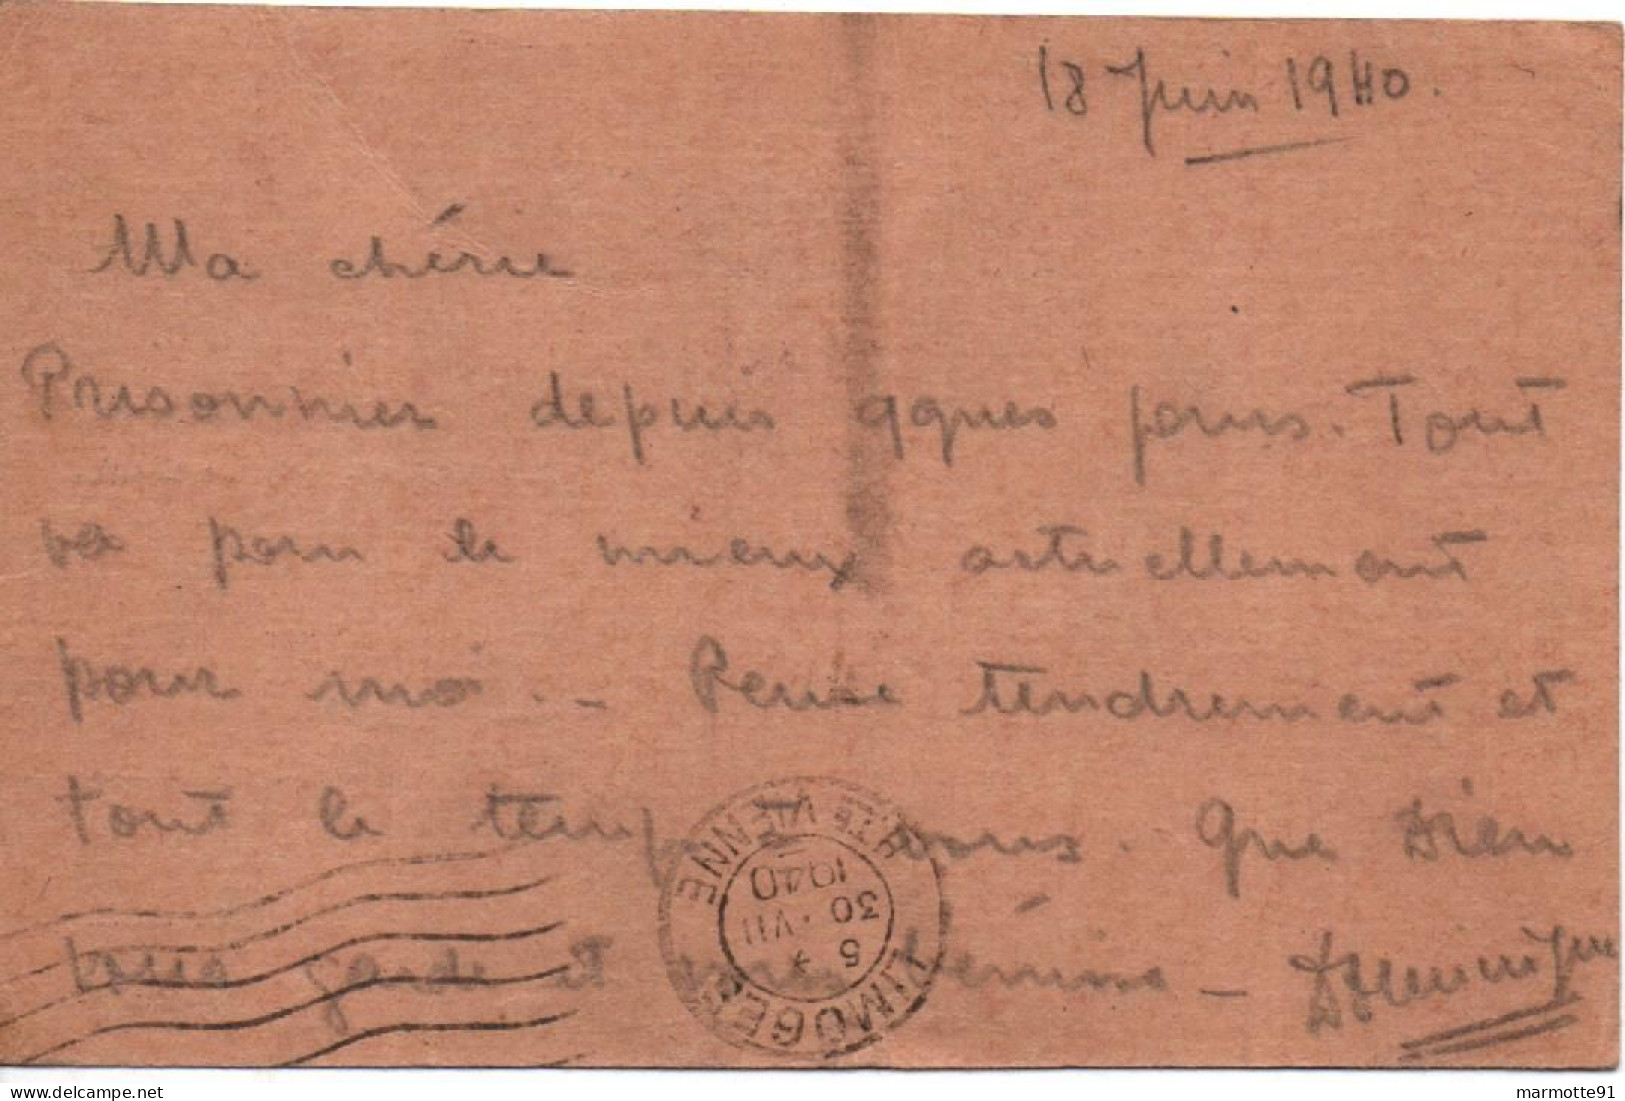 18 Juin 1940.
Ma chérie
Prisonnier depuis qques jours. Tout
va pour le mieux actuellement
pour moi. _ Pense tendrement et
tout le temps vous. Que Dieu
vous garde et vous bénisse _ Dominique
LIMOGES
HTE VIENNE
5 *
30 · VII
1940
marmotte91